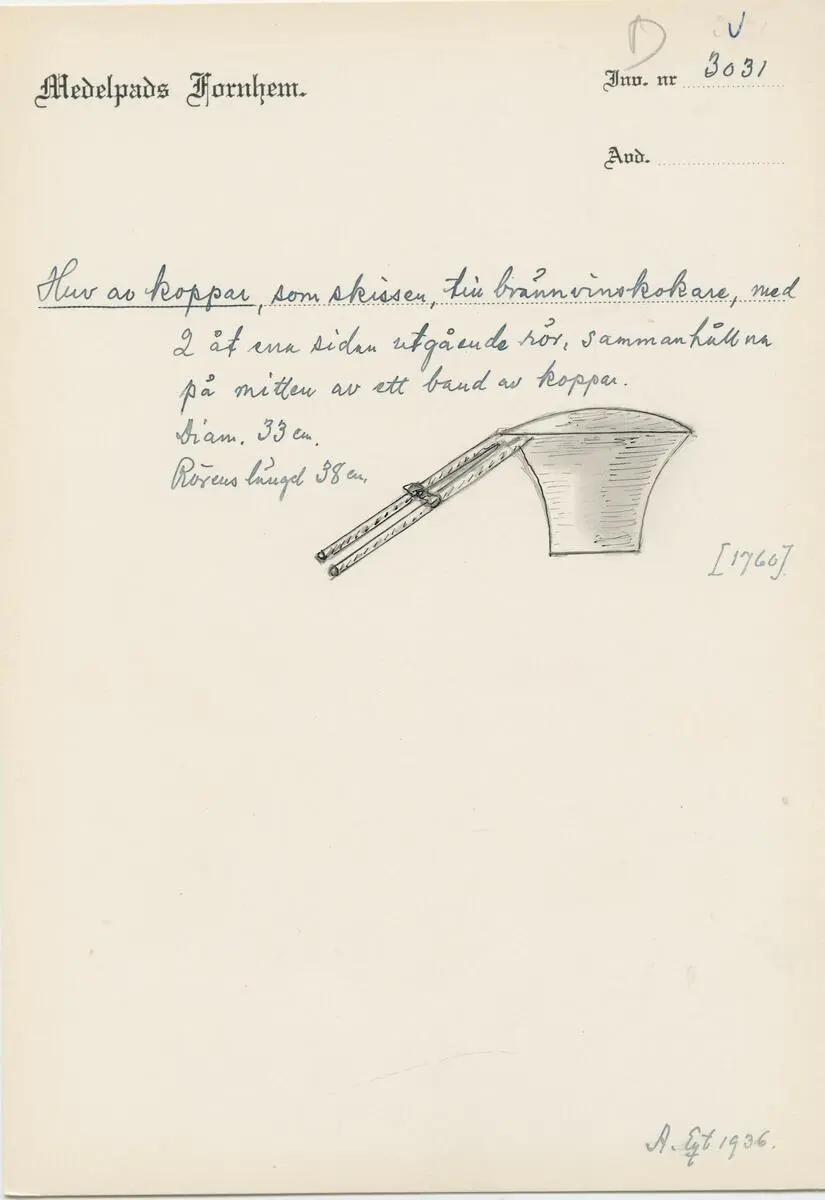 D V
Medelpads Fornhem.
Inv. nr 3031
Avd.
Huv av koppar, som skissen, till brännvinskokare, med
2 åt ena sidan utgående rör, sammanhållna
på mitten av ett band av koppar.
Diam. 33 cm.
Rörens längd 38 cm.
[1760]
A. 1936.